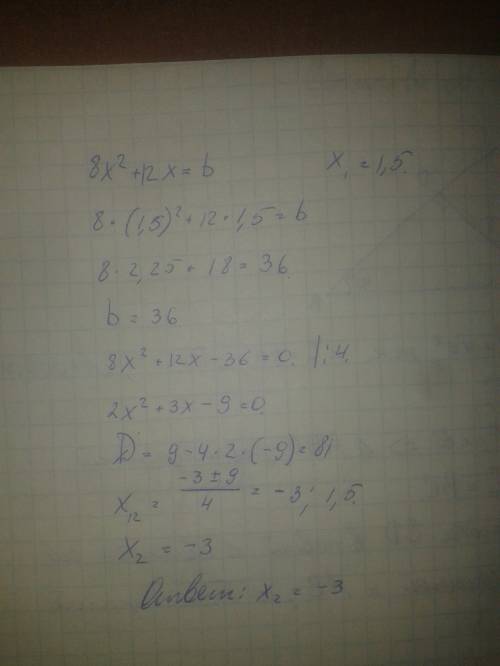 8x² + 12x = b    x₁ = 1,5.
8 * (1,5)² + 12 * 1,5 = b
8 * 2,25 + 18 = 36.
b = 36
8x² + 12x - 36 = 0. | : 4.
2x² + 3x - 9 = 0.
D = 9 - 4 * 2 * (-9) = 81
x₁₂ = (-3 ± 9)/4 = -3; 1,5.
x₂ = -3
Ответ: x₂ = -3